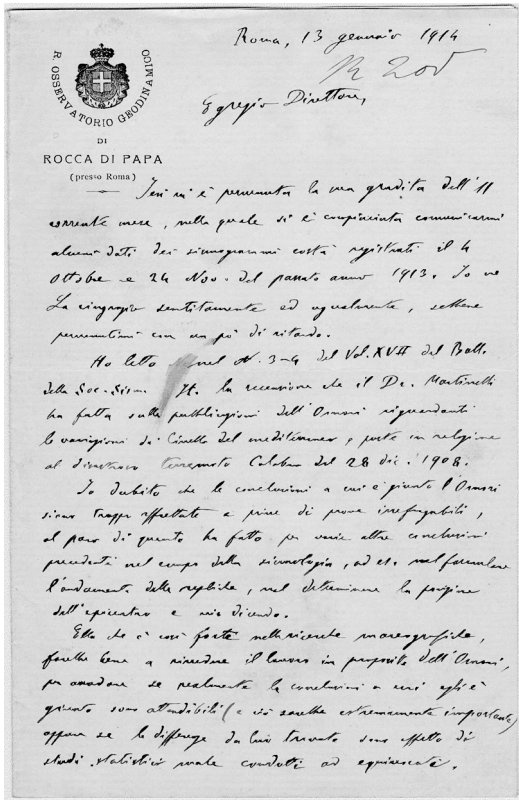 R. OSSERVATORIO GEODINAMICO
DI
ROCCA DI PAPA
(presso Roma)
Roma, 13 gennaio 1914
Egregio Direttore,
Ieri mi è pervenuta la sua gradita dell'11
corrente mese, nella quale si è compiaciuta comunicarmi
alcuni dati dei sismogrammi costà registrati il 4
Ottobre e 24 Nov. del passato anno 1913. Io ne
La ringrazio sentitamente ed ugualmente, sebbene
pervenutimi con un pò di ritardo.
Ho letto nel N. 3-4 del Vol. XVII del Boll.
della Soc. Sism. It. la recensione che il Dr. Martinelli
ha fatta sulle pubblicazioni dell'Omori riguardanti
le variazioni di livello del mediterraneo, poste in relazione
al disastroso terremoto Calabro del 28 dic. 1908.
Io dubito che le conclusioni a cui è giunto l'Omori
siano troppo affrettate e prive di prove irrefragabili,
al paro di quanto ha fatto per varie altre conclusioni
precedenti nel campo della sismologia, ad es. nel formulare
l'andamento delle repliche, nel determinare la posizione
dell'epicentro e via dicendo.
Ella che è così forte nelle ricerche mareografiche,
farebbe bene a rivedere il lavoro in proposito dell'Omori,
per assodare se realmente le conclusioni a cui egli è
giunto sono attendibili (e ciò sarebbe estremamente importante)
oppure se le differenze da lui trovate sono effetto di
studi statistici male condotti ed equivocati.